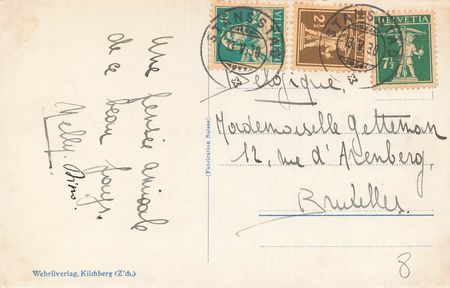 Une pensée amicale
de ce beau pays.
Nelly.
STANSSTAD
HELVETIA
2½
HELVETIA
7½
Belgique.
Mademoiselle Getteman
12, rue d'Arenberg,
Bruxelles.
(Fabrication Suisse)
8
Wehrliverlag, Kilchberg (Z'ch.)